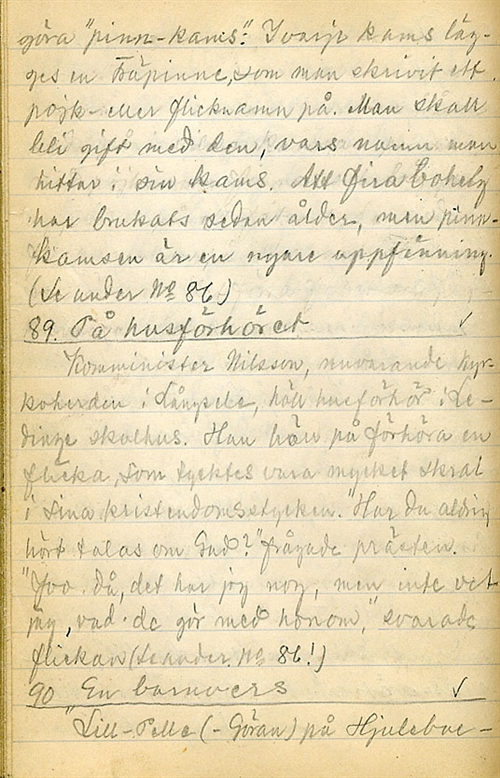 göra "pinn-kams". I varje kams läg-
ges en träpinne, som man skrivit ett
pojk- eller flicknamn på. Man skall
bli gift med den, vars namn man
hittar i sin kams. Att fira
har brukats sedan ålder, men pinn-
kamsen är en nyare uppfinning.
(Se under No 86)
89. På husförhöret ✓
Komminister Nilsson, nuvarande kyr-
koherden i Långsele, höll husförhör i Le-
dinge skolhus. Han höll på förhöra en
flicka, som tycktes vara mycket skral
i sina kristendomsstycken. "Har du aldrig
hört talas om Gud?" frågade prästen.
"Joo då, det har jag nog, men inte vet
jag, vad de gör med honom," svarade
flickan (Se under No 86!)
90 En barnvers ✓
"Lill-Pelle (-Göran) på Hjulebac-